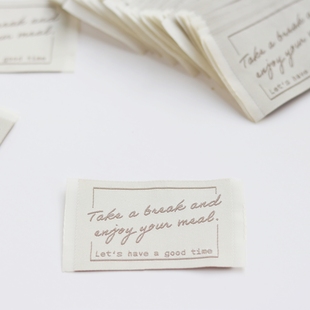 a break and
enjoy your meal
good time
Take a break and
enjoy your
Let's have a
Take a break and
enjoy your meal.
Let's have a good time